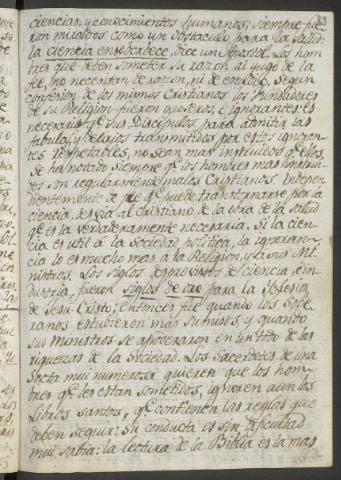 ciencias, y conocimientos humanos; siempre fue-
ron mirados como un obstaculo para la salud:
la ciencia ensoberbece, dice un Apostol. Los hom-
bres que deben someter su razon al yugo de la
fe, no necesitan de razon, ni de estudio. Segun
confesion de los mismos Cristianos los Fundadores
de su Religion fueron groseros, é ignorantes; es
necesario qe sus Discipulos para admitir las
fabulas, y delirios transmitidos por estos ignoran-
tes respetables, no sean mas instruidos qe ellos.
Se ha notado siempre qe los hombres mas instrui-
dos son regularmente malos Cristianos. Indepen-
dientemente de fe qe puede transtornarse por la
ciencia, desvia al cristiano de la obra de la salud
qe es la verdaderamente necesaria. Si la cien-
cia es util á la Sociedad politica, la ignoran-
cia lo es mucho mas á la Religion, y a sus Mi-
nistros. Los siglos desprovistos de ciencia, é in-
dustria, fueron siglos de oro para la Yglesia
de Jesu-Cristo; entonces fue quando los Sobe-
ranos estubieron mas sumisos, y quando
sus ministros se apoderaron de las
riquezas de la Sociedad. Los Sacerdotes de una
Secta mui numerosa quieren que los hom-
bres qe les estan sometidos, ignoren aun los
Libros santos, qe contienen las reglas que
deben seguir. Su conducta es sin dificultad
mui sabia: la lectura de la Biblia es la mas